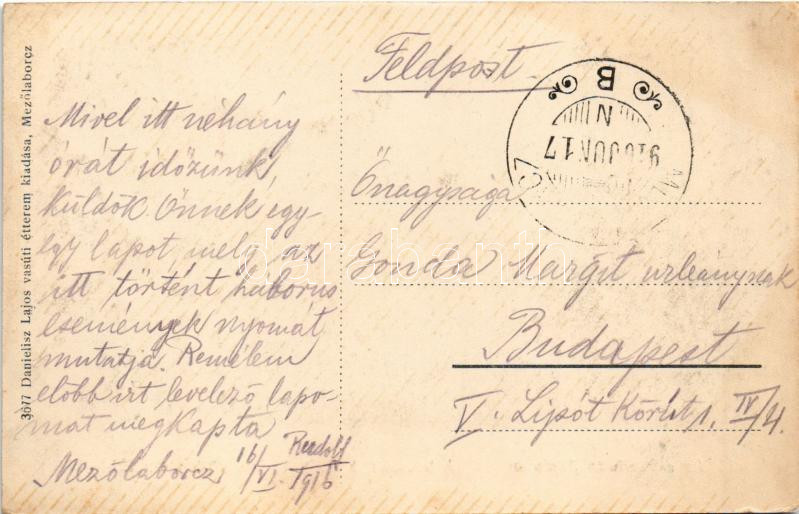 3677 Danielisz Lajos vasúti étterem kiadása, Mezőlaborcz
Mivel itt néhány
órát időzünk
küldök Önnek egy-
egy lapot, mely az
itt történt háborus
események nyomát
mutatja. Remélem
előbb irt levelező lapo-
mat megkapta
Rudolf
Mezőlaborcz 16/VI. 1916
Feldpost
B
N
916 JUN 17
CZ
Őnagysága
Gonda Margit urleánynak
Budapest
V. Lipót Körút 1. IV/4.
darabanth